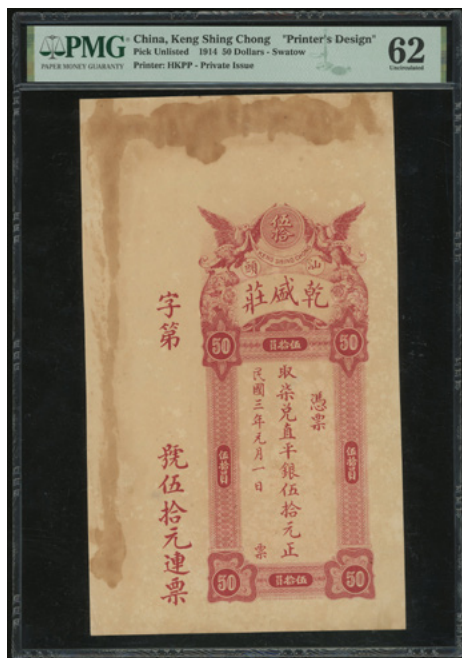 PMG
PAPER MONEY GUARANTY
China, Keng Shing Chong "Printer's Design"
Pick Unlisted 1914 50 Dollars - Swatow
Printer: HKPP - Private Issue
62
Uncirculated
伍拾
KENG SHING CHONG
頭 汕
莊盛乾
50
員拾伍
50
憑票
取柒兌直平銀伍拾元正
民國三年元月一日
票
伍拾員
伍拾員
50
員拾伍
50
字第
號伍拾元連票